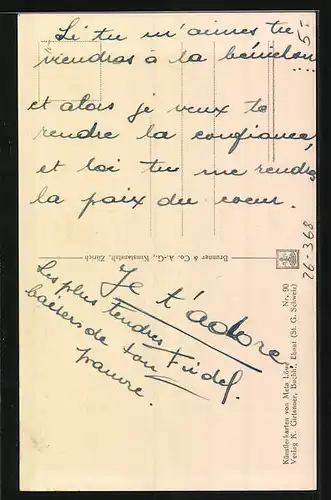 Si tu m'aimes tu
viendras à la
et alors je veux te
rendre la confiance,
et toi tu me rendras
la paix du coeur.
Brunner & Co. A.-G., Kunstanstalt, Zürich
Je t'adore
Les plus tendres
baisers de ton Fidel.
pauvre.
26-368
Nr. 90
Künstlerkarten von Meta Löwe
Verlag K. Girtanner, Buchh., Ebnat (St. G. Schweiz)
5.-